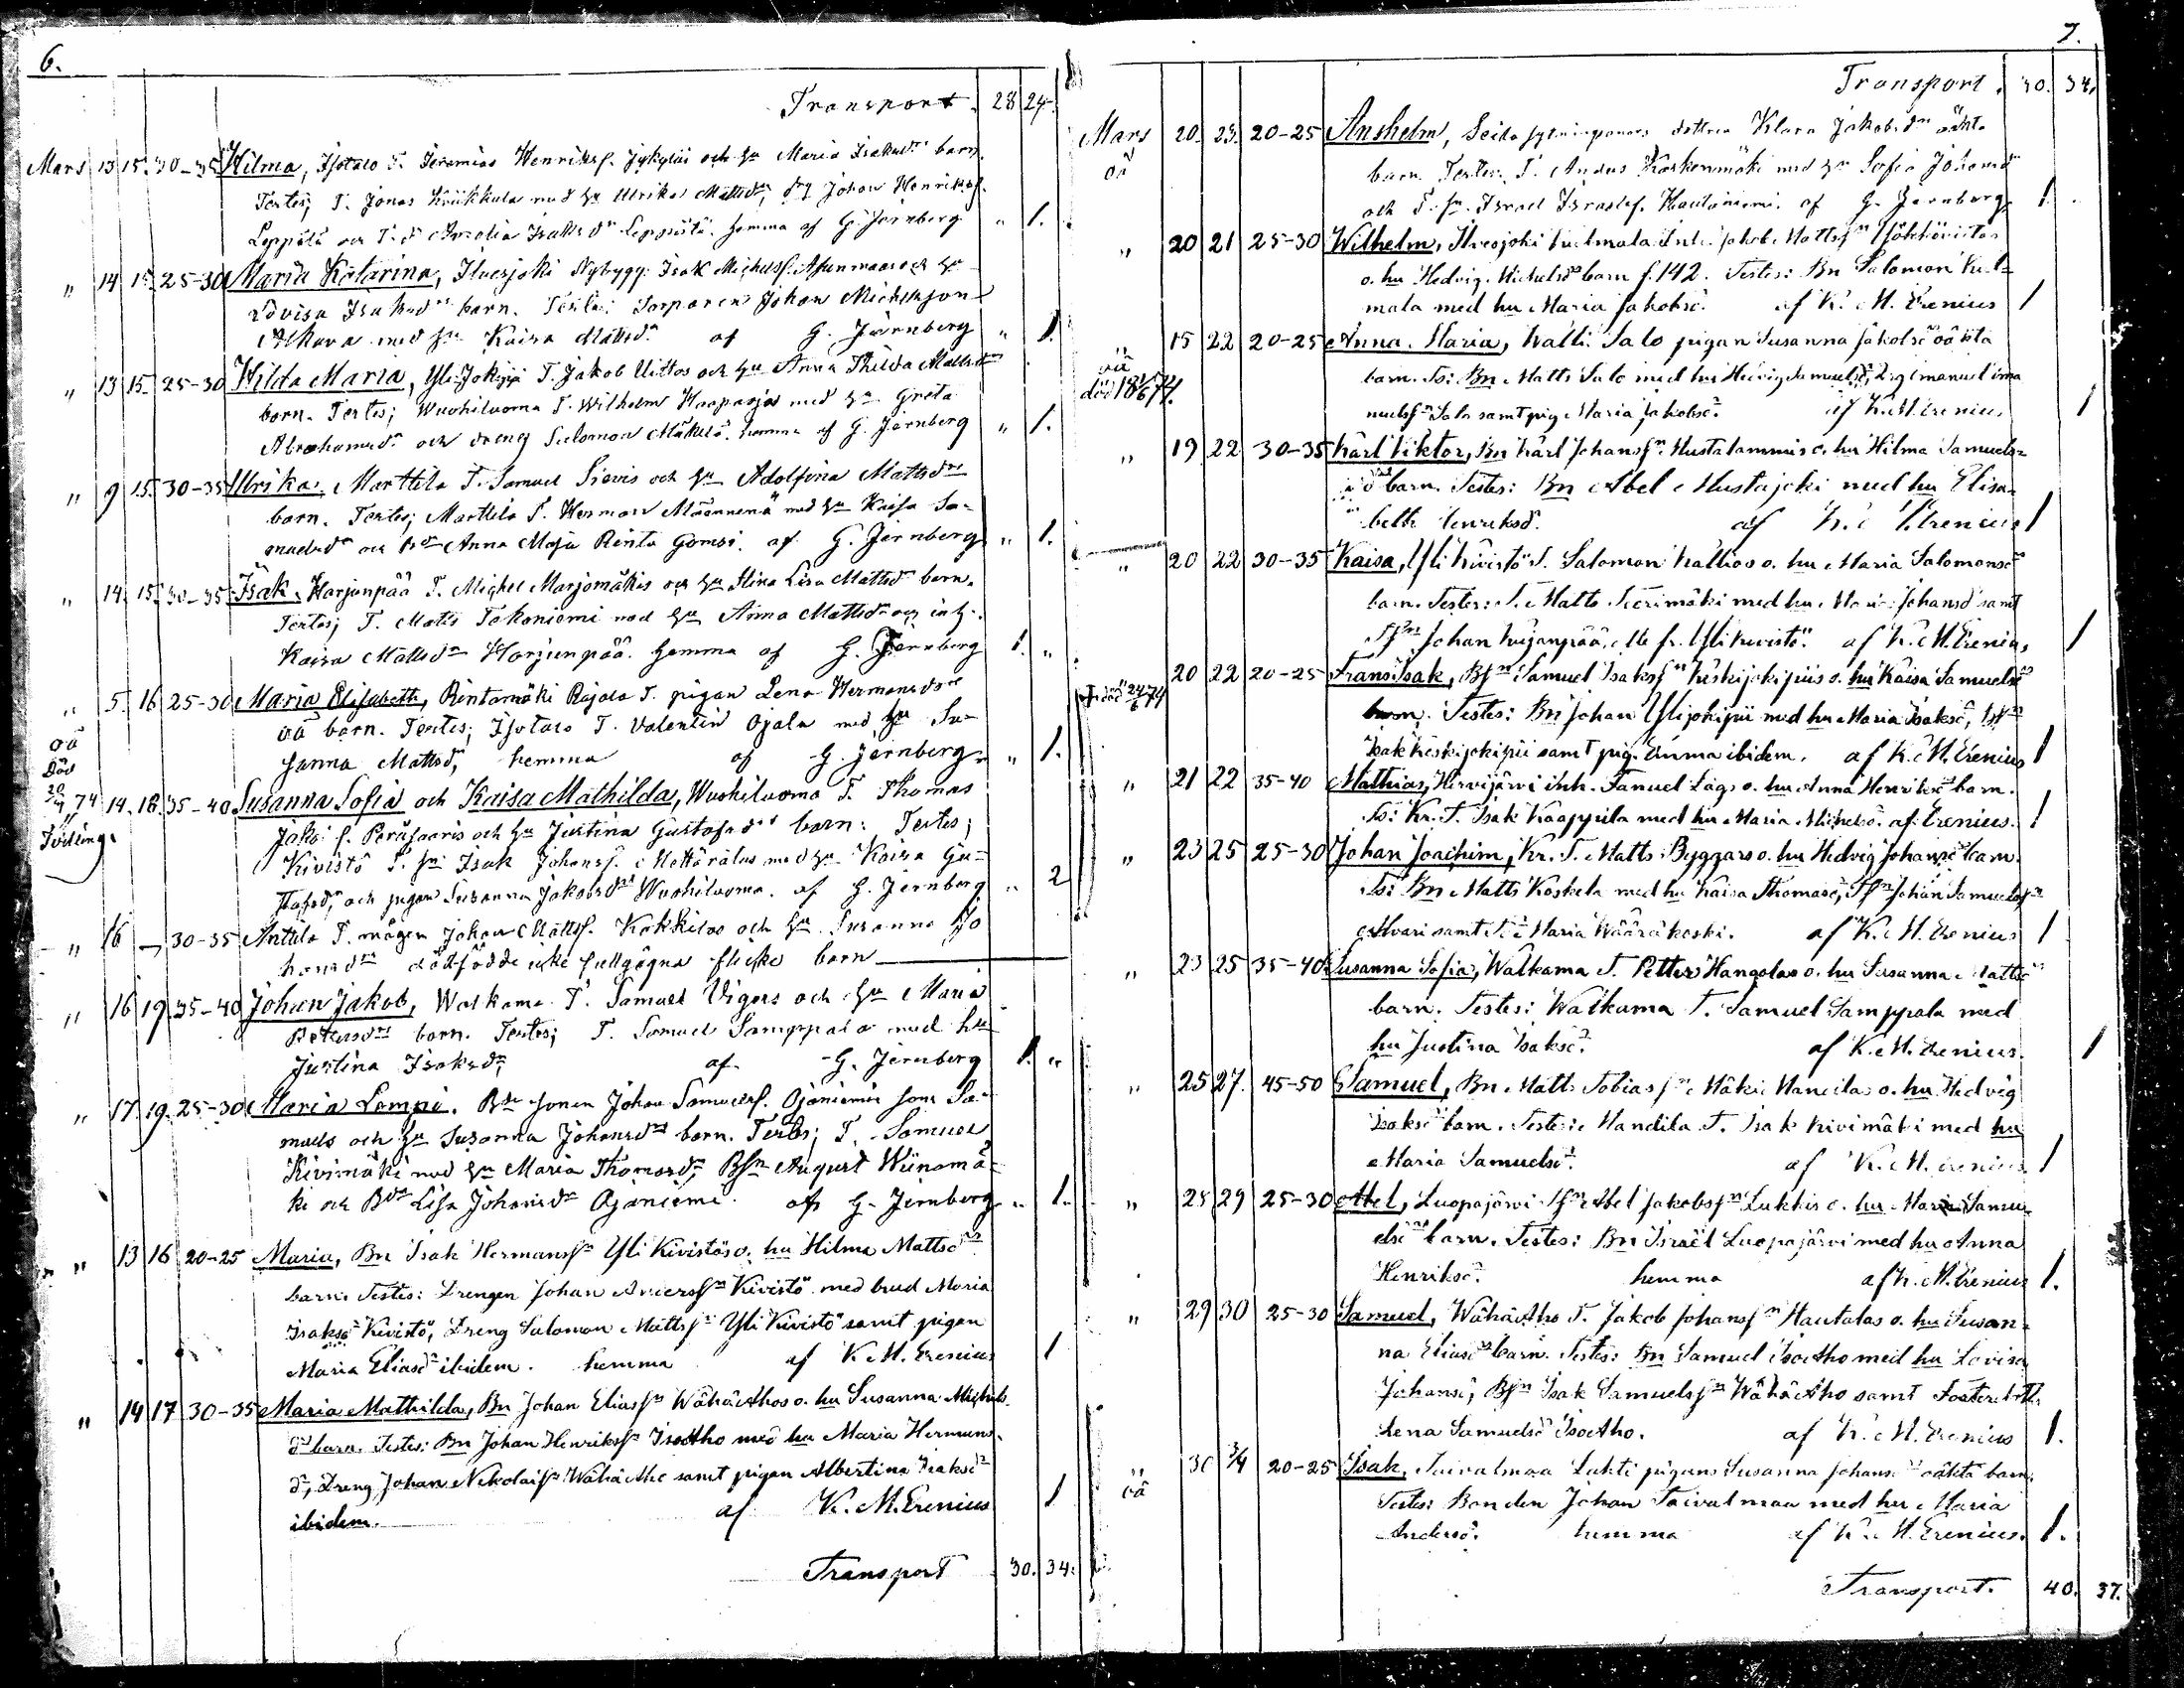 6.
Transport. 28 24
Mars 13 15. 30-35 Hilma, Isotalo T. Jeremias Henriksf. Jykyläi och hu Maria Isaksd. barn.
Testes; T. Jonas Kriikkula med hu Ulrika Mattsd., drg Johan Henriksf.
Leppälä och T. d. Amalia Isaksd. hemma af G. Jernberg " 1.
" 14 15. 25-30 Maria Katarina, Ilvesjoki Nybygg. Isak Michelsf. och hu
Lovisa Isaksd. barn. Testes: Torparen Johan Michelsson
Alkava med hu Kaisa Mattsd. af G. Jernberg " 1.
" 13 15. 25-30 Hilda Maria, Yli-Jokipii T. Jakob Uittos och hu Anna Thilda Mattsd.
barn. Testes; Wuohiluoma T. Wilhelm Haapaoja med hu Greta
Abrahamsd. och dreng Salomon Mäkelä. hemma af G. Jernberg " 1.
" 9 15. 30-35 Ulrika, Marttila T. Samuel Sievis och hu Adolfina Mattsd.
barn. Testes; Marttila T. Herman Mäännenä med hu Kaisa Sa-
muelsd. och Anna Maja Rinta Gomsi. af G. Jernberg " 1.
" 14. 15. 30-35 Isak, Harjunpää T. Michel Marjomäkis och hu Stina Lisa Mattsd. barn.
Testes; T. Matts Takaniemi med hu Anna Mattsd. och inh.
Kaisa Mattsd. Harjunpää. hemma af G. Jernberg 1. "
" 5. 16 25-30 Maria Elisabeth, Rintamäki Rajala T. pigan Lena Hermansds
oä barn. Testes; Isotalo T. Valentin Ojala med hu Su-
oä
sanna Mattsd, hemma af G. Jernberg " 1.
död
20/4 74 14. 18. 35-40 Susanna Sofia och Kaisa Mathilda, Wuohiluoma T. Thomas
" Jakobsf. Peräsaaris och hu Justina Gustafsd. barn: Testes;
Tvilling.
Kivistö T. Isak Johansf. med hu Kaisa Gu-
stafsd, och pigan Susanna Jakobsd. Wuohiluoma. af G. Jernberg " 2
" 16 - 30-35 Anttila T. mågen Johan Mattsf. Kokkilas och hu Susanna Jo
hansd. dödfödde icke fullgågna flicke barn
" 16 19. 35-40 Johan Jakob, Walkama T. Samuel Vigars och hu Maria
Petersd. barn. Testes; T. Samuel Samppala med hu
Justina Isaksd. af G. Jernberg 1. "
" 17. 19. 25-30 Maria Lempi. Bde sonen Johan Samuelsf. Ojaniemis som Sa-
muels och hu Susanna Johansd. barn. Testes; T. Samuel
Kivimäki med hu Maria Thomasd., Bsn August Wiinamä-
ki och Bdr Lisa Johansd. Ojaniemi. af G. Jernberg " 1.
" 13 16 20-25 Maria, Bn Isak Hermanssn Yli Kivistös o. hu Hilma Mattsd.
barn. Testes: Drengen Johan Anderssn Kivistö med brud Maria
Isaksd. Kivistö, Dreng Salomon Mattssn Yli Kivistö samt pigan
Maria Eliasd. ibidem. hemma af K. M. Erenius 1
" 14 17 30-35 Maria Mathilda, Bn Johan Eliassn WähäAhos o. hu Susanna Michels-
d. barn. Testes: Bn Johan Henrikssn IsoAho med hu Maria Hermans-
d., Dreng Johan Nikolaisn WähäAho samt pigan Albertina Isaksd.
ibidem. af K. M. Erenius 1
Transport 30. 34.
7.
Transport. 30. 34.
Mars 20. 23. 20-25 Anshelm, dottren Klara Jakobsd. oäkta
oä
barn. Testes: T. Anders Koskenmäki med hu Sofia Johansd
och T. sn. Israel Israelsf. Hautaniemi. af G. Jernberg 1.
" 20 21 25-30 Wilhelm, Ilvesjoki Kuclmala Inh. Jakob Mattssn
o. hu Hedvig Michelsd. barn f. 142. Testes: Bn Salomon Kul-
mala med hu Maria Jakobsd. af K. M. Erenius 1
" 15 22 20-25 Anna Maria, Kalli Salo pigan Susanna Jakobsd. oäkta
oä
barn. Ts: Bn Matts Salo med hu Hedvig Samuelsd,
död 18 6/7 74.
Salo samt pig. Maria Jakobsd. af K. M. Erenius 1
" 19 22 30-35 Karl Viktor, Bn Karl Johanssn Mustalammis o. hu Hilma Samuels-
d barn. Testes: Bn Abel Mustajoki med hu Elisa-
beth Henriksd. af K. M. Erenius 1
" 20 22 30-35 Kaisa, Yli Kivistö T. Salomon Kallios o. hu Maria Salomonsd
barn. Testes: T. Matts med hu Maria Johansd samt
Johan Kujanpää, Yli Kivistö. af K. M. Erenius 1
20 22 20-25 Frans Isak, Bsn Samuel Isakssn Keskijokipiis o. hu Kaisa Samuelsd
död 24/6 74
barn. Testes: Bn Johan Ylijokipii med hu Maria Isaksd,
Isak Keskijokipii samt pig. Emma ibidem. af K. M. Erenius 1
" 21 22 35-40 Mathias, Hirvijärvi inh. Samuel Lågs o. hu Anna Henriksd barn.
Ts: Kr. T. Isak Kaappila med hu Maria Michelsd. af Erenius. 1
" 23 25 25-30 Johan Joachim, Kr. T. Matts Byggars o. hu Hedvig Johansd barn.
Ts: Bn Matts Koskela med hu Kaisa Thomasd, Johan Samuelssn
Alvari samt Maria Wääräkoski. af K. M. Erenius 1
" 23 25 35-40 Susanna Sofia, Walkama T. Petter Hangolas o. hu Susanna Mattsd
barn. Testes: Walkama T. Samuel Samppala med
hu Justina Isaksd. af K. M. Erenius. 1
" 25 27. 45-50 Samuel, Bn Matts Tobiassn Mäki Mandilas o. hu Hedvig
Isaksd barn. Testes: Mandila T. Isak Kivimäki med hu
Maria Samuelsd. af K. M. Erenius 1
" 28 29 25-30 Abel, Luopajärvi Abel Jakobssn Lukkis o. hu Maria Samu-
elsd barn. Testes: Bn Israël Luopajärvi med hu Anna
Henriksd. hemma af K. M. Erenius 1.
" 29 30 25-30 Samuel, WähäAho T. Jakob Johanssn Hautalas o. hu Susan-
na Eliasd barn. Testes: Bn Samuel IsoAho med hu Lovisa
Johansd, Bsn Isak Samuelssn WähäAho samt
Lena Samuelsd IsoAho. af K. M. Erenius 1.
" 30 3/4 20-25 Isak, Taivalmaa Lahti pigans Susanna Johansd oäkta barn.
oä
Testes: Bonden Johan Taivalmaa med hu Maria
Andersd. hemma af K. M. Erenius. 1.
Transport. 40. 37.